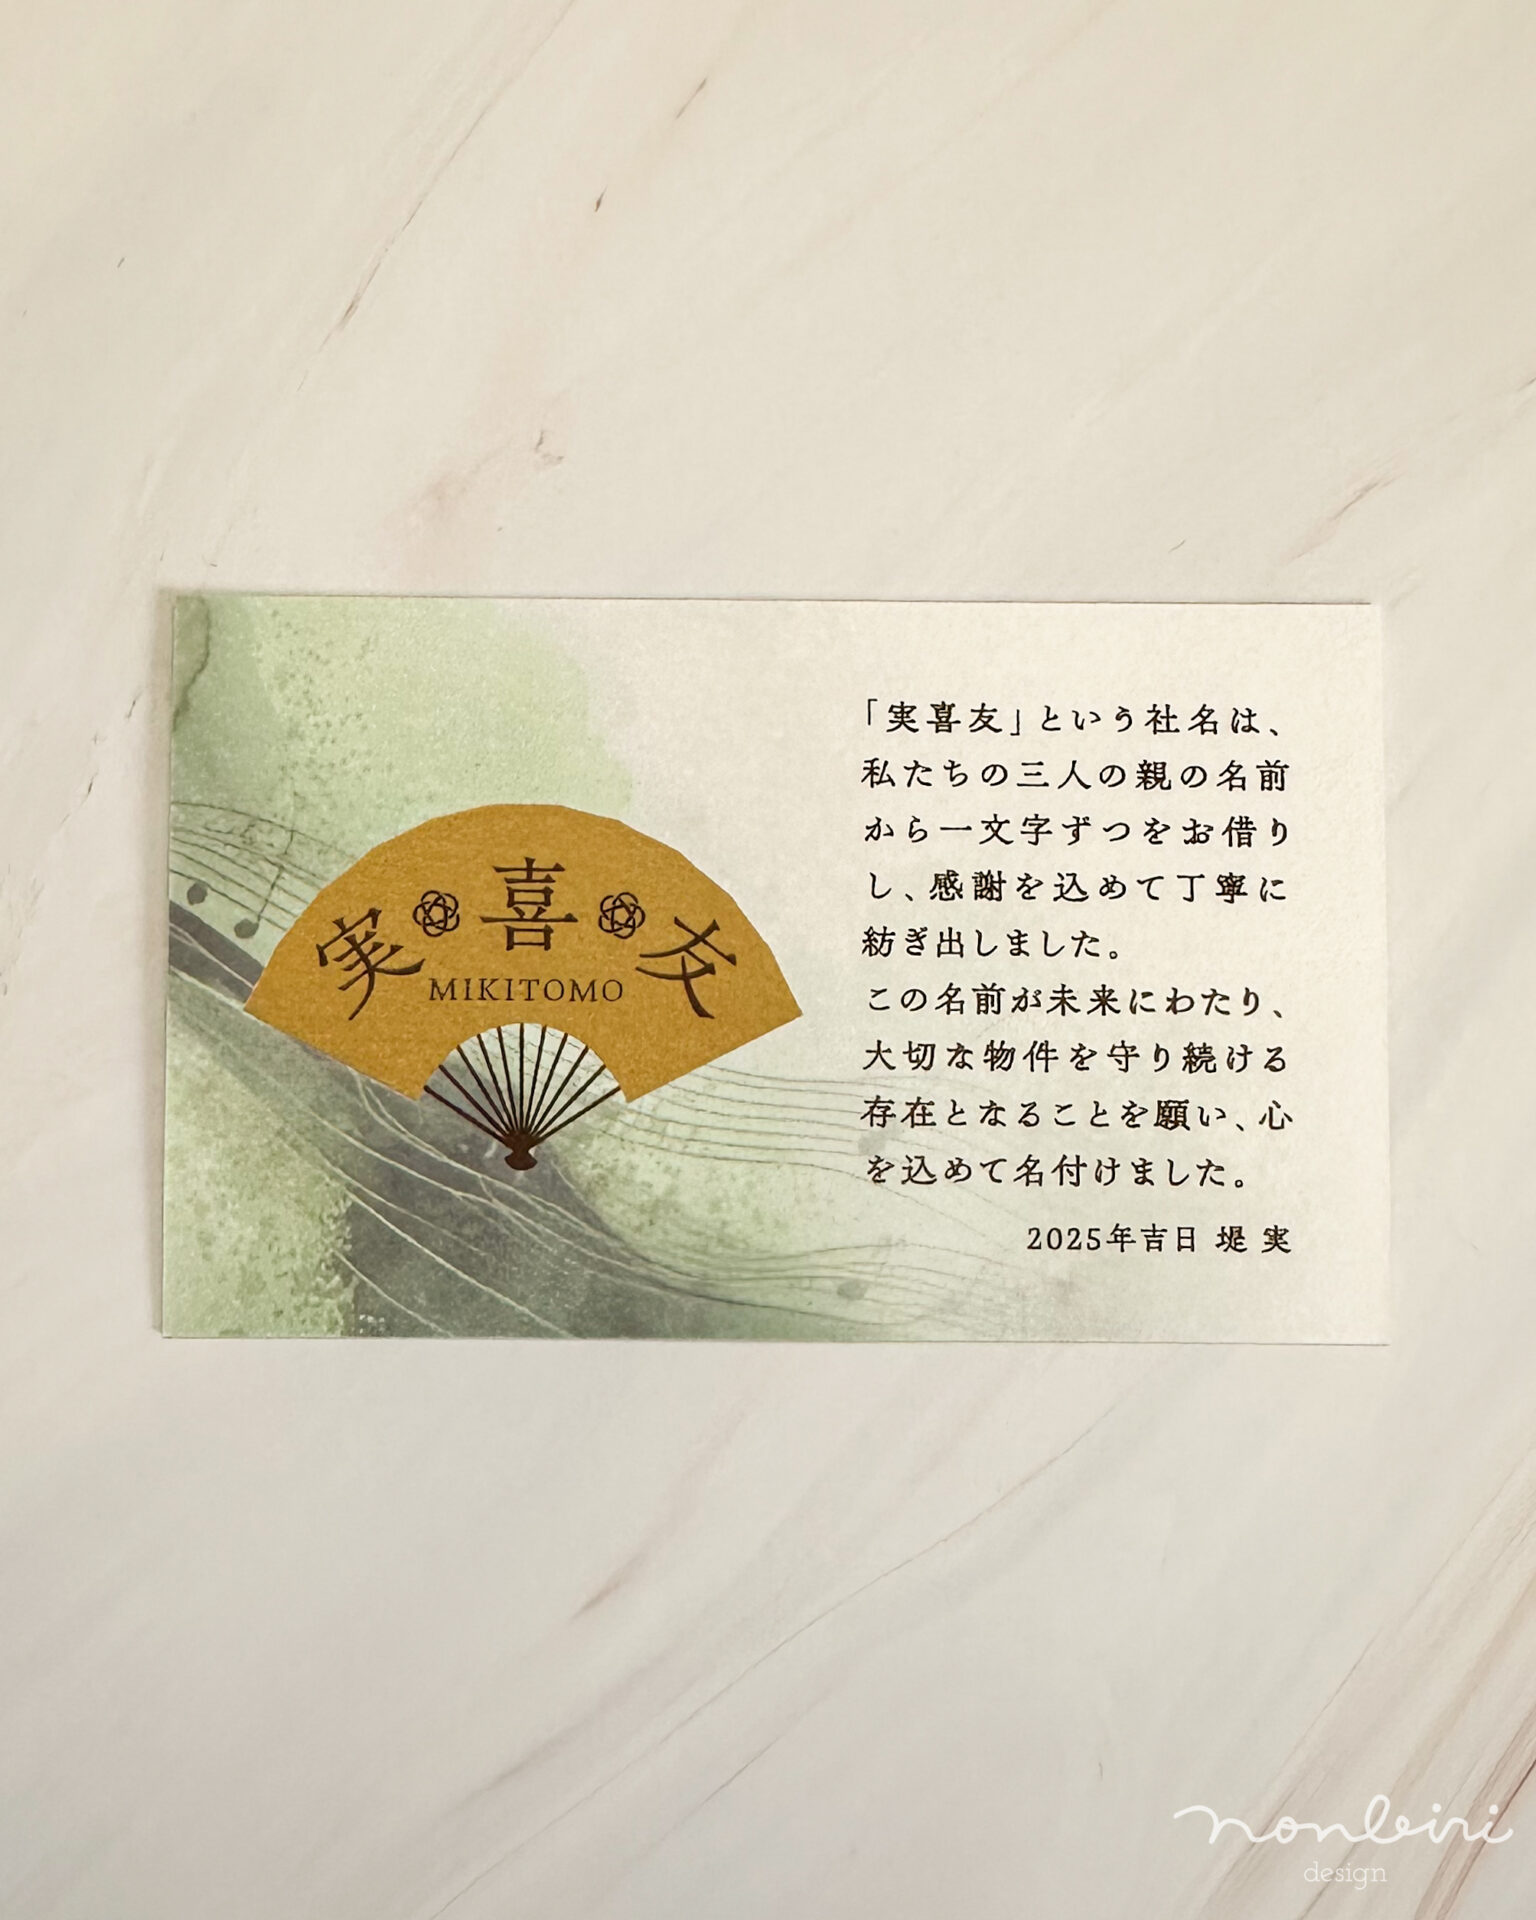 実 喜 友
MIKITOMO
「実喜友」という社名は、
私たちの三人の親の名前
から一文字ずつをお借り
し、感謝を込めて丁寧に
紡ぎ出しました。
この名前が未来にわたり、
大切な物件を守り続ける
存在となることを願い、心
を込めて名付けました。
2025年吉日 堤 実
nonbiri
design